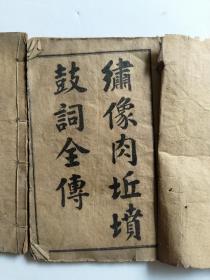 繡像肉坵墳
鼓詞全傳